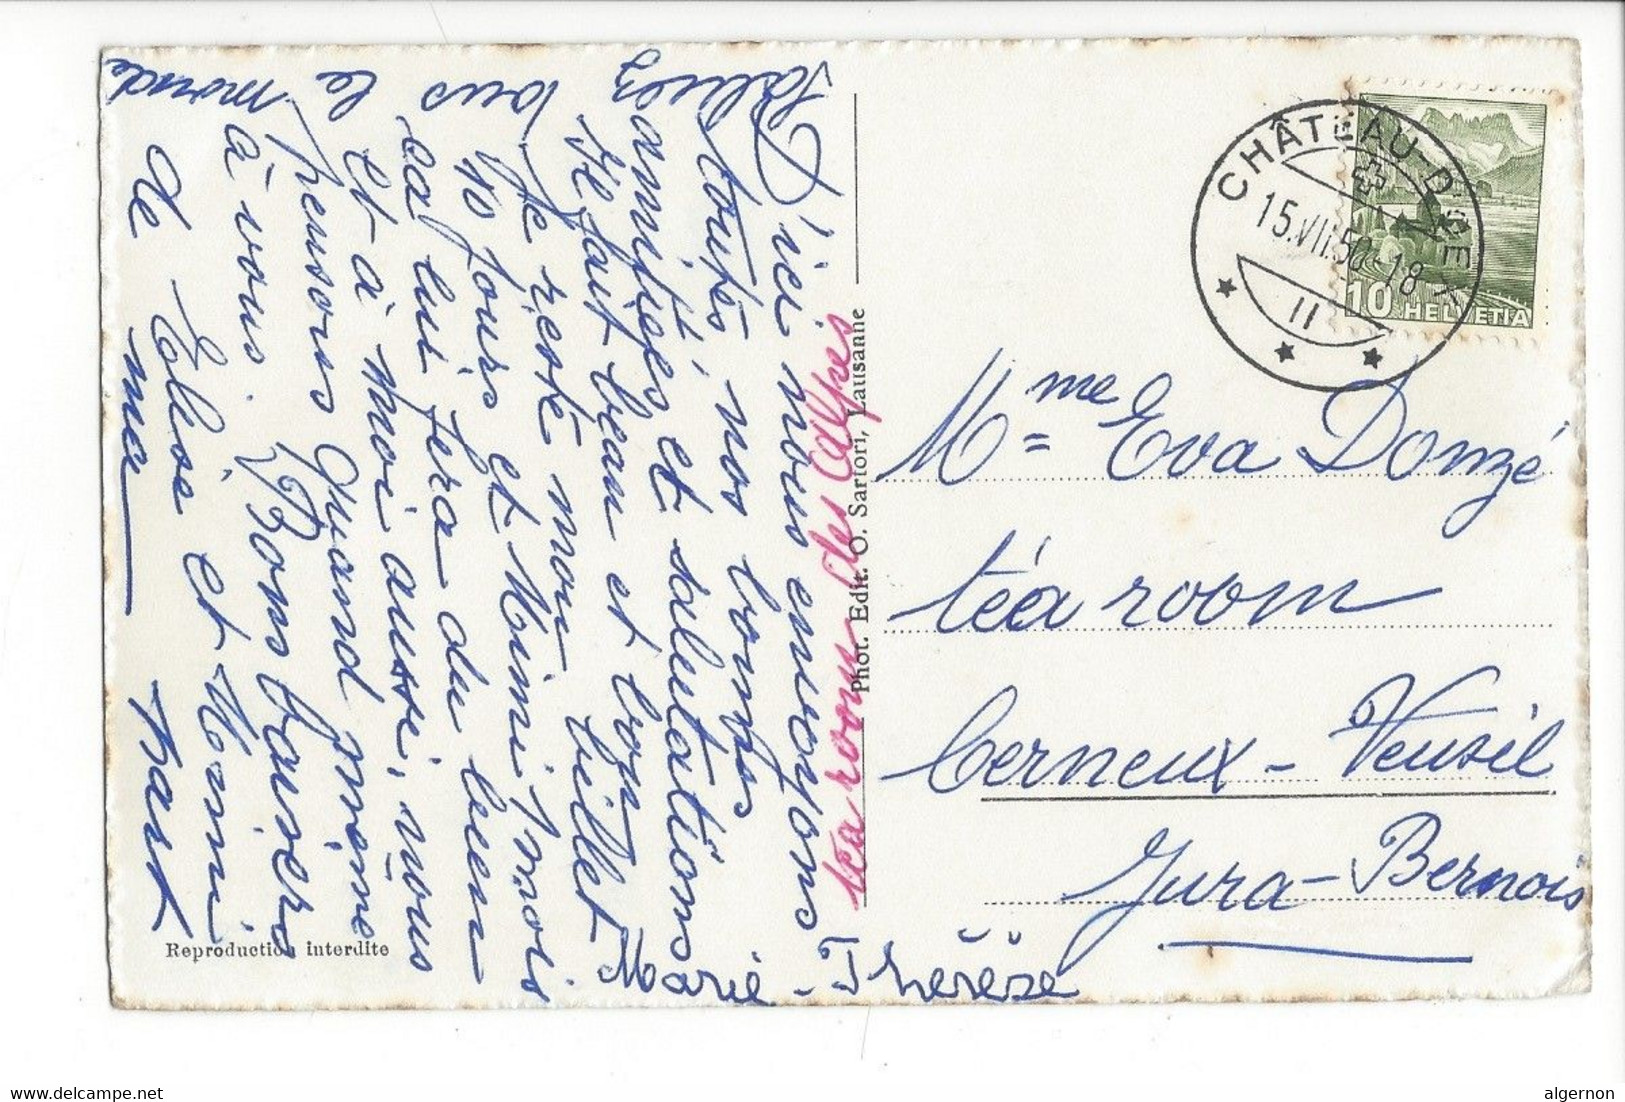 D'ici nous envoyons
toutes nos bonnes
amitiés et salutations
Il fait beau et bon
je reste mon billet
10 jours et Mimi
ça lui fera du bien
et à moi aussi, nous
pensons quand même
à vous. Bons baisers
de Elise et Mimi
Saluez
tous
le
monde
Marie-Thérèse
téa room des Alpes
Phot. Edit. O. Sartori, Lausanne
Reproduction interdite
CHÂTEAU-D'OEX
15.VII.50-18
II
10 HELVETIA
Mme Eva Donzé
téa room
Cerneux-Veusil
Jura-Bernois
delcampe.net
algernon